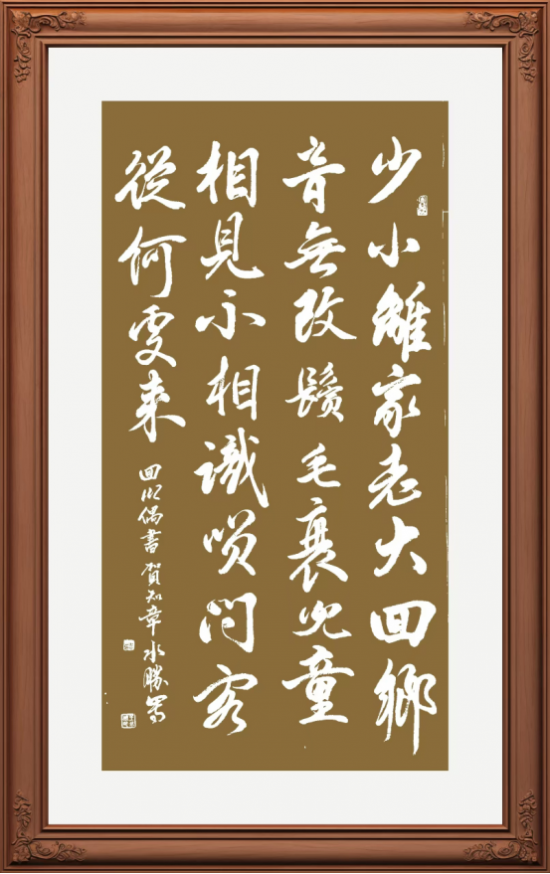 少小離家老大回鄉
音無改鬢毛衰兒童
相見不相識咲問客
從何處來
回鄉偶書 賀知章 水勝